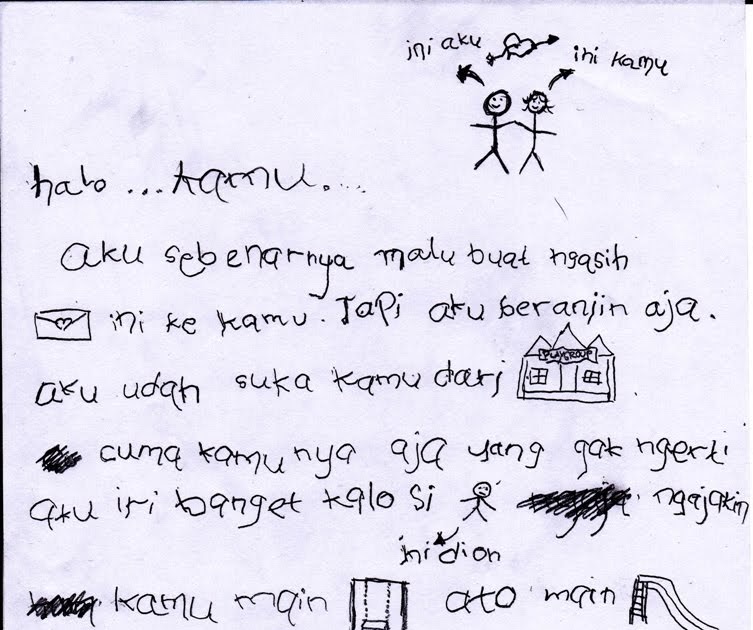 ini aku
ini kamu
halo ... kamu....
aku sebenarnya malu buat ngasih
ini ke kamu. Tapi aku beranjin aja.
aku udah suka kamu dari
PLAYGROUP
cuma kamu nya aja yang gak ngerti
aku iri banget kalo si ngajakin
ini dion
kamu main ato main